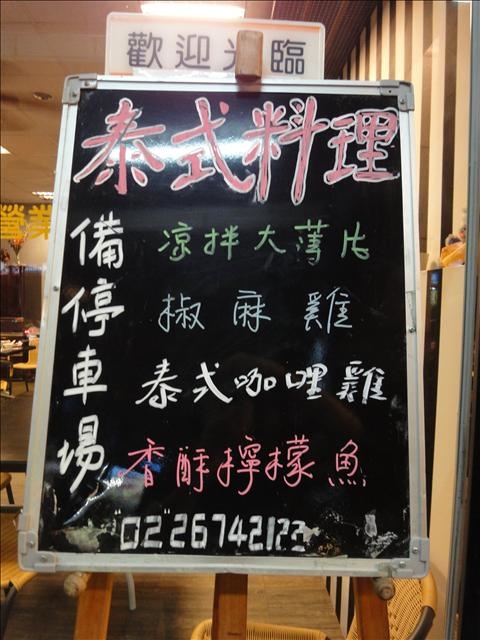 歡迎光臨
泰式料理
備停車場
凉拌大薄片
椒麻雞
泰式咖哩雞
香酥檸檬魚
"02"26742122
營業